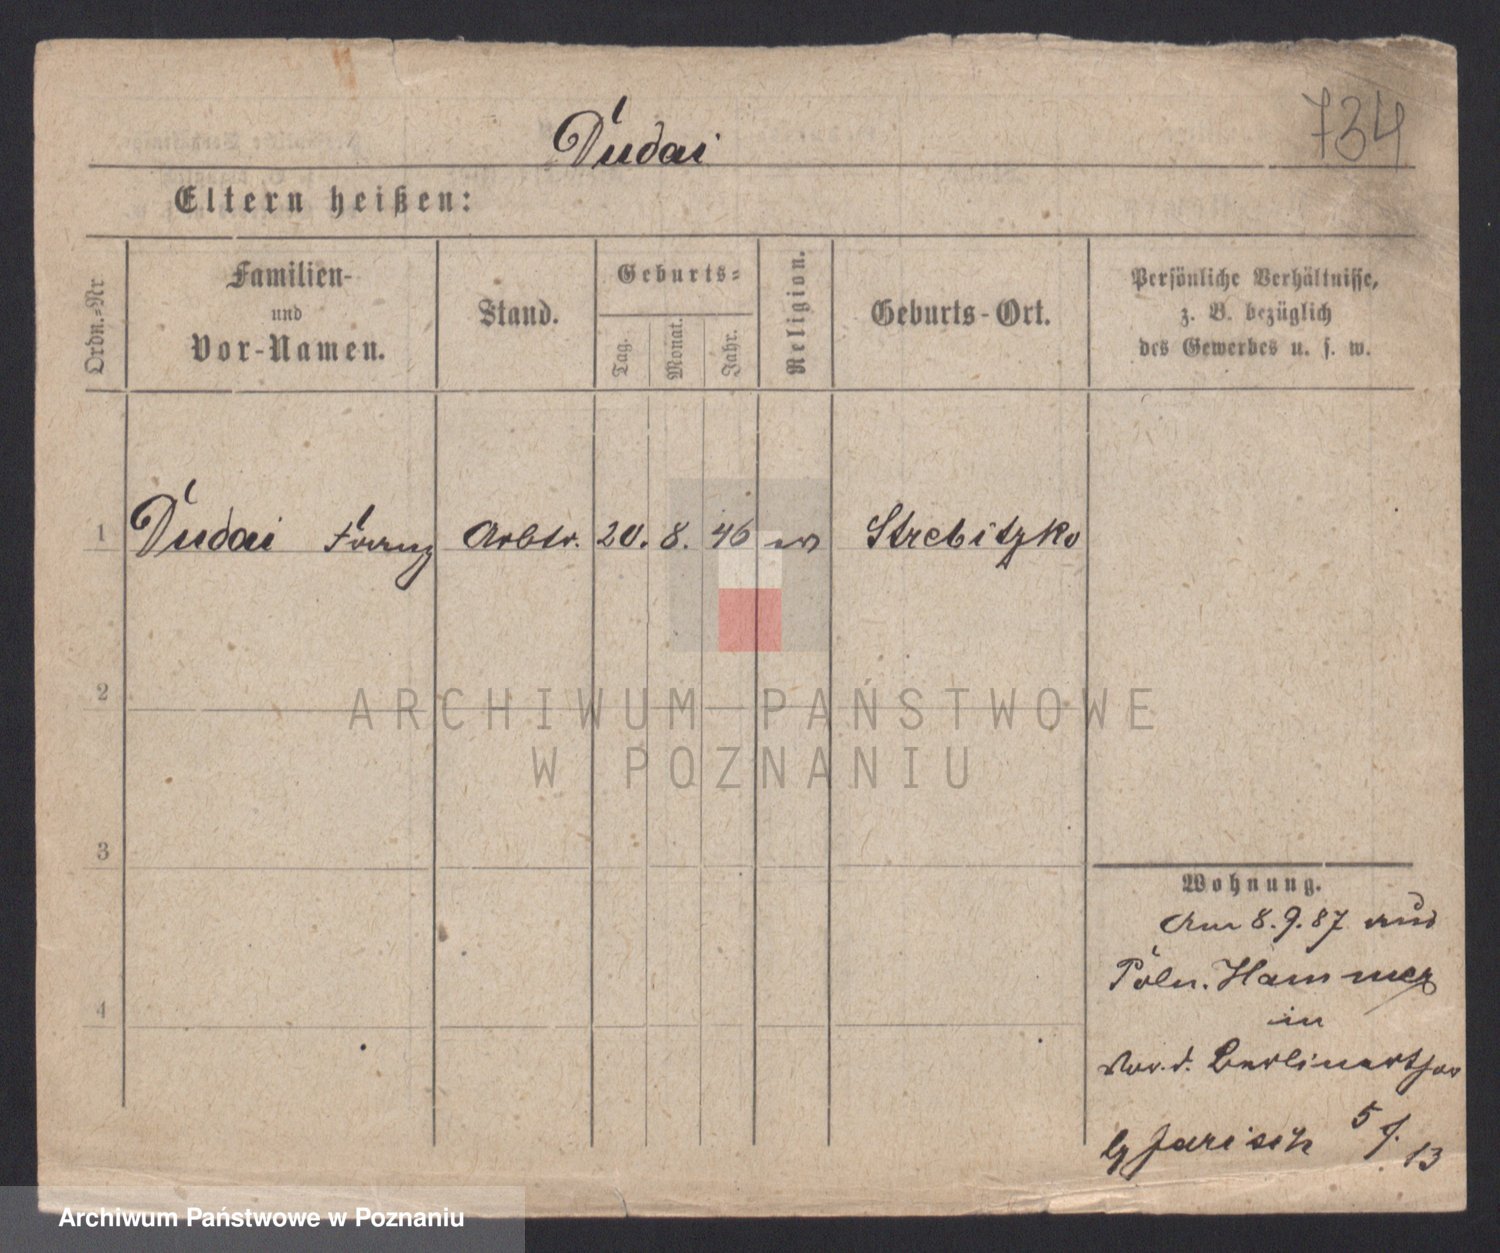 734
Dudai
Eltern heißen:
Ordn.=Nr
Familien-
und
Vor-Namen.
Stand.
Geburts=
Tag.
Monat.
Jahr.
Religion.
Geburts-Ort.
Persönliche Verhältnisse,
z. B. bezüglich
des Gewerbes u. s. w.
1 Dudai Franz Arbtr. 20. 8. 46 Strebitzko
2
3
4
ARCHIWUM PAŃSTWOWE
W POZNANIU
Wohnung.
Am 8.9.87 aus
Poln. Hammer
in
Vor. d. Berlinerthor
Jarisch 5/7. 13
Archiwum Państwowe w Poznaniu